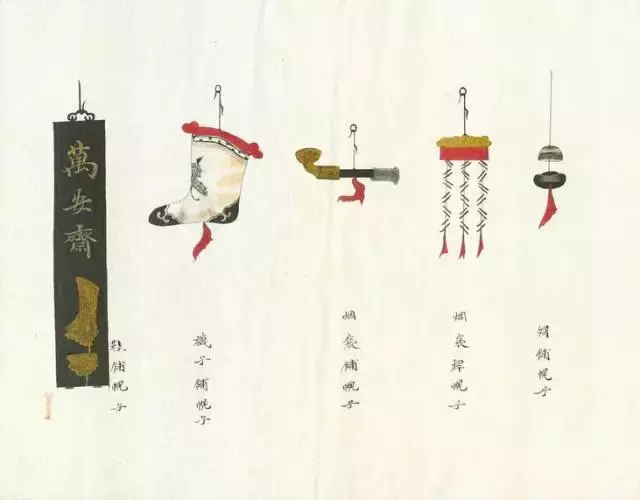 帽舖幌子
烟袋桿幌子
烟袋舖幌子
襪子舖幌子
鞋舖幌子
萬安齋